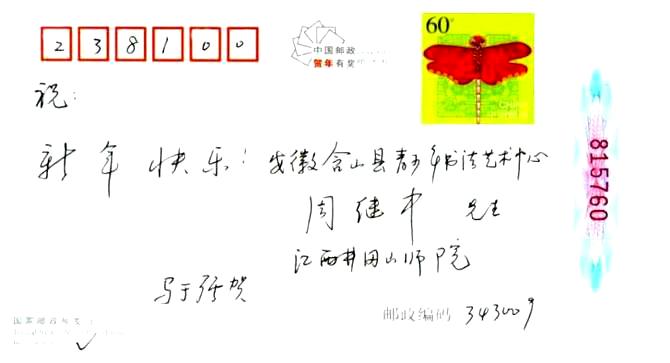 238100
中国邮政
贺年有奖
60
祝:
新年快乐! 安徽含山县青少年书法艺术中心
周继中 先生
江西井冈山师院
马于强贺
邮政编码 343009
815760